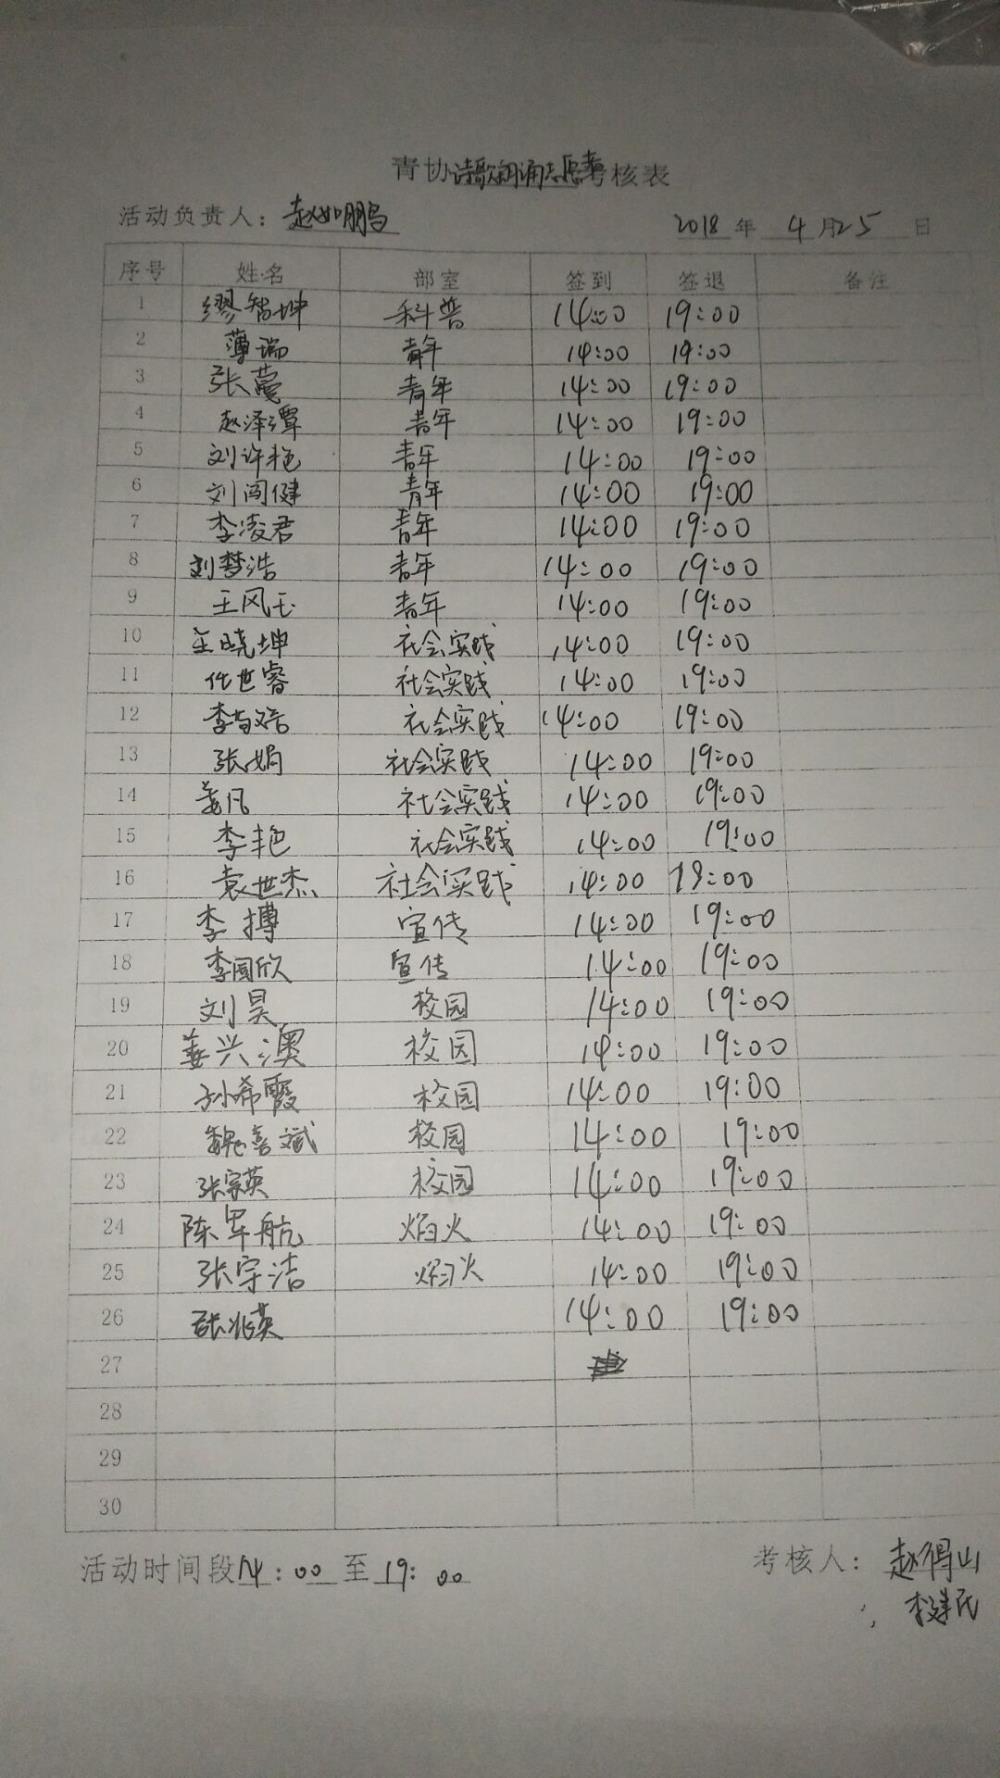 青协诗歌朗诵志愿者考核表
活动负责人：赵如鹏 2018年4月25日
序号 姓名 部室 签到 签退 备注
1 缪智坤 科普 14:00 19:00
2 薄瑞 青年 14:00 19:00
3 张蔓 青年 14:00 19:00
4 赵泽潭 青年 14:00 19:00
5 刘许艳 青年 14:00 19:00
6 刘闯健 青年 14:00 19:00
7 李凌君 青年 14:00 19:00
8 刘梦浩 青年 14:00 19:00
9 王风玉 青年 14:00 19:00
10 王晓坤 社会实践 14:00 19:00
11 任世睿 社会实践 14:00 19:00
12 李 社会实践 14:00 19:00
13 张娟 社会实践 14:00 19:00
14 姜凡 社会实践 14:00 19:00
15 李艳 社会实践 14:00 19:00
16 袁世杰 社会实践 14:00 19:00
17 李搏 宣传 14:00 19:00
18 李国欣 宣传 14:00 19:00
19 刘昊 校园 14:00 19:00
20 姜兴澳 校园 14:00 19:00
21 孙希霞 校园 14:00 19:00
22 魏嘉斌 校园 14:00 19:00
23 张家英 校园 14:00 19:00
24 陈军航 焰火 14:00 19:00
25 张宇洁 焰火 14:00 19:00
26 张兆英 14:00 19:00
27
28
29
30
活动时间段14:00至19:00 考核人：赵得山
、李建民